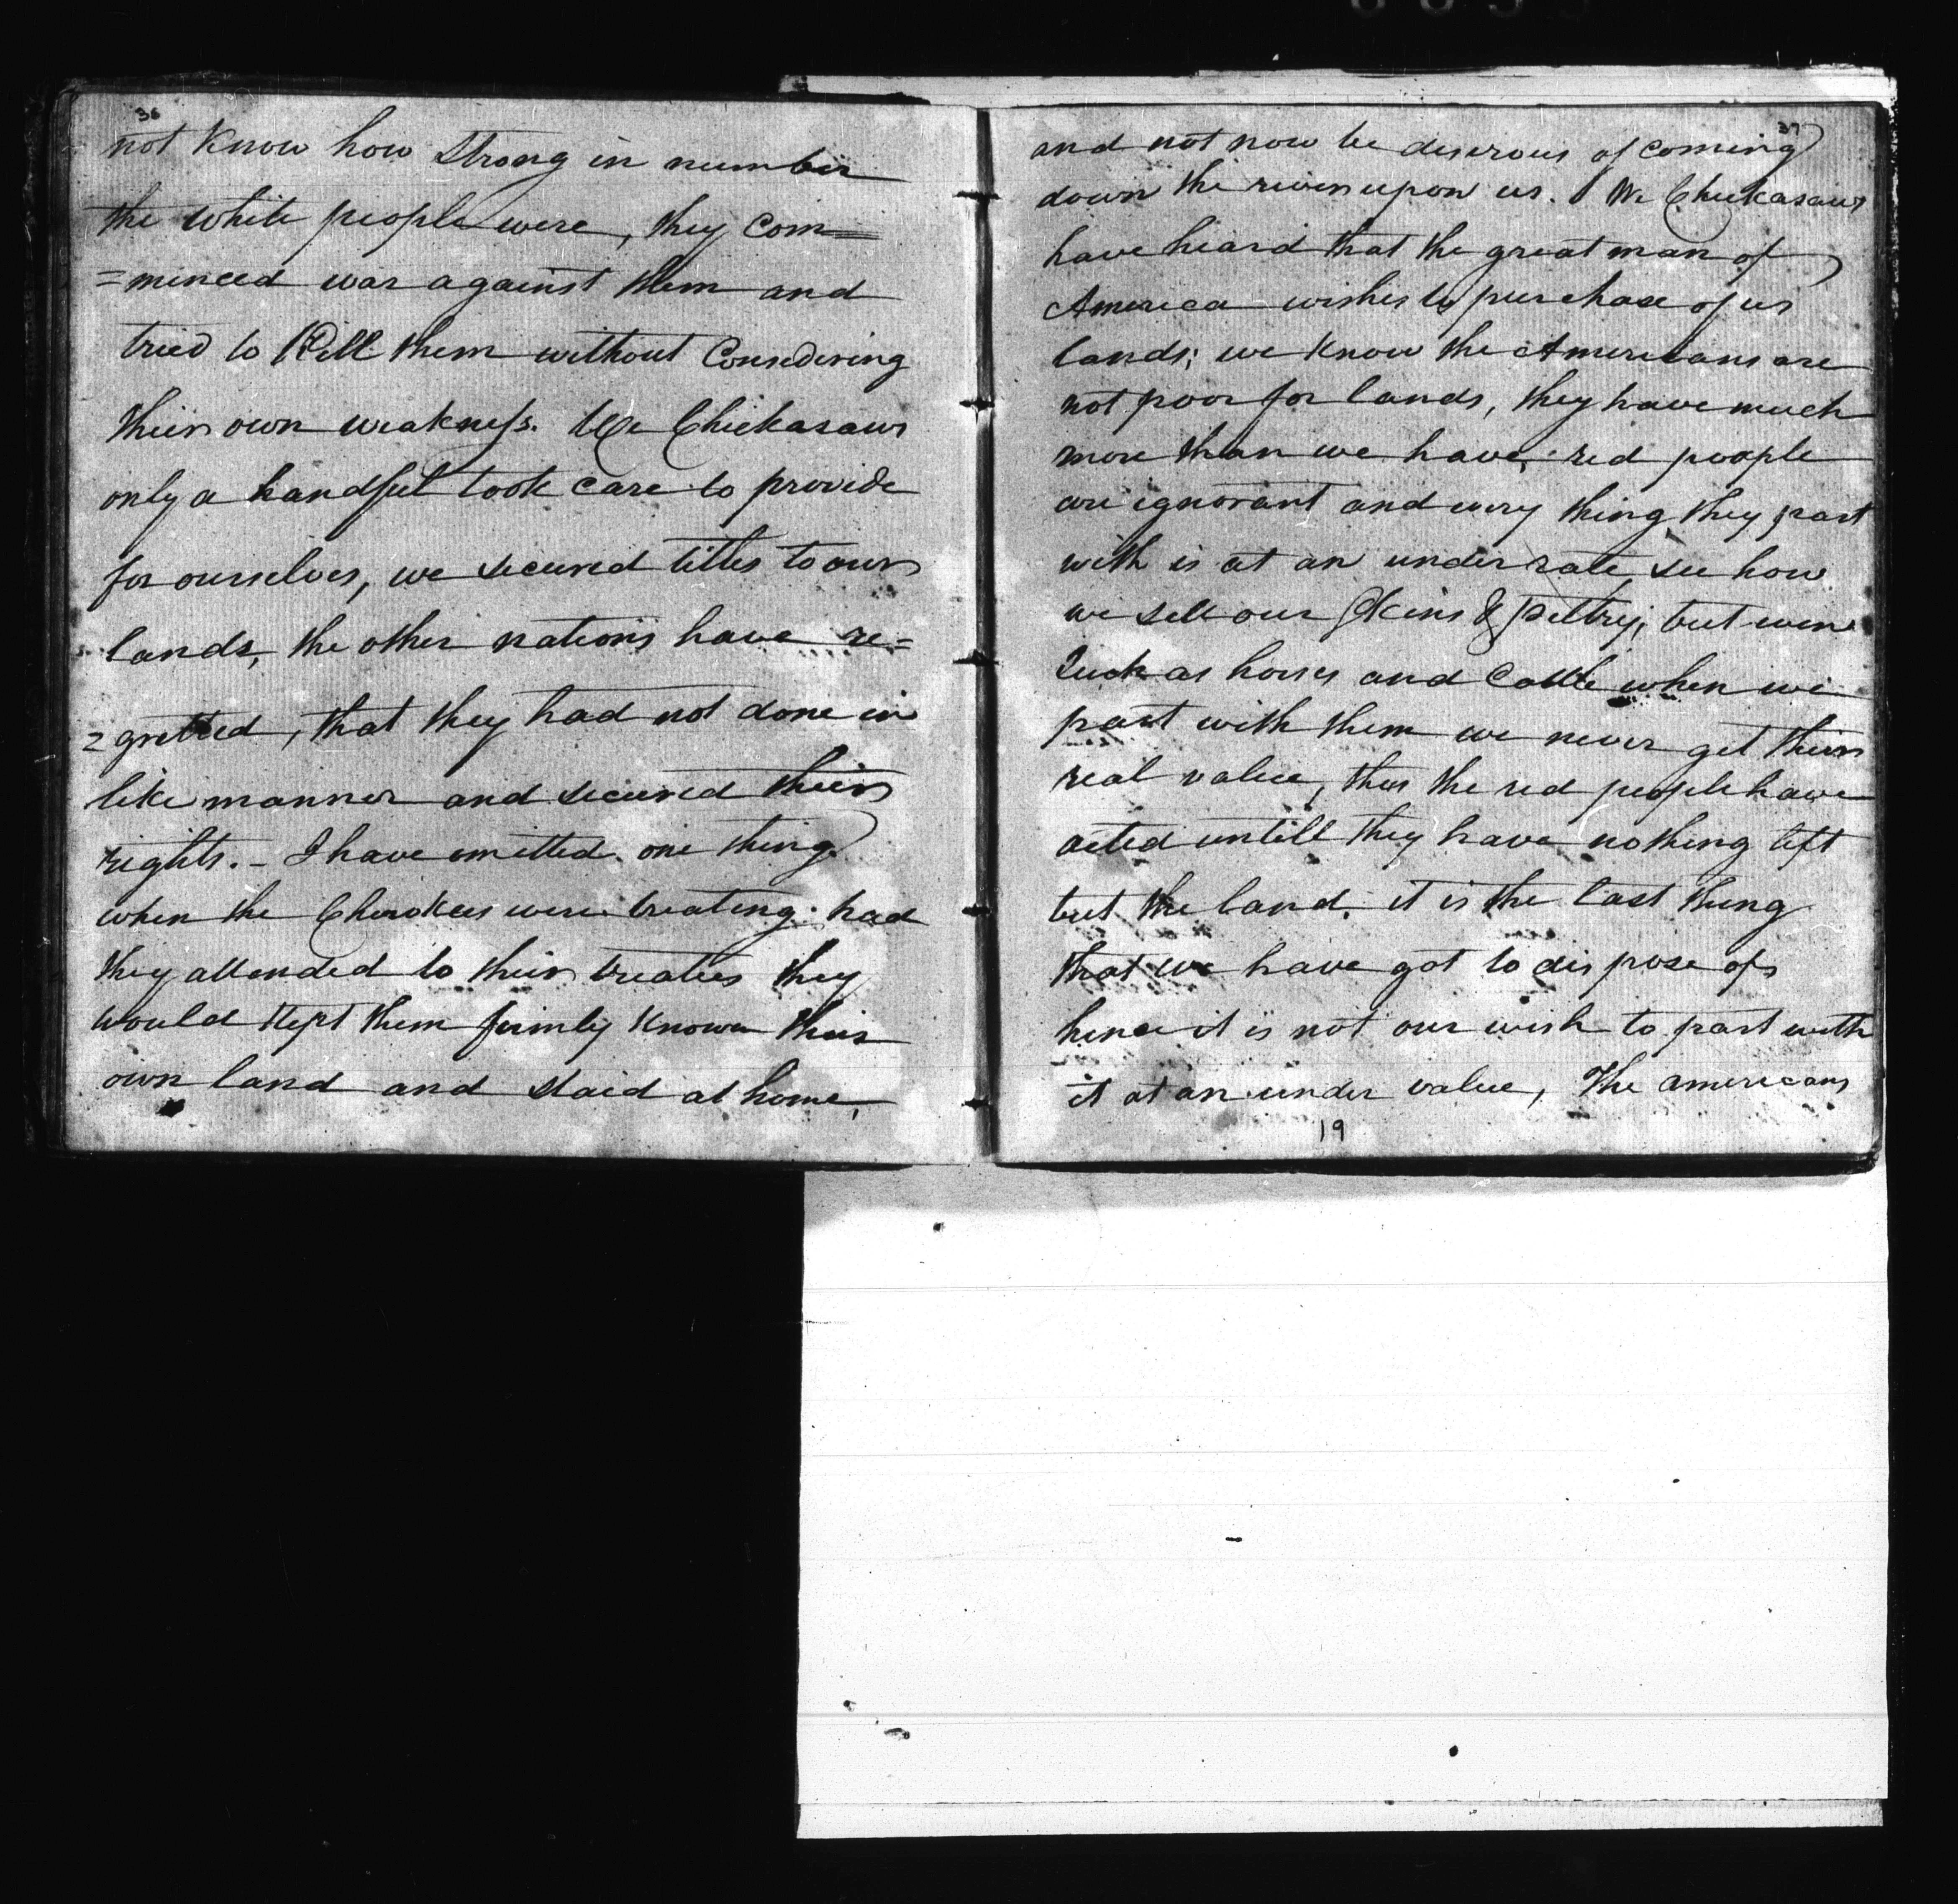 36
not Know how strong in number
the white people were, they com=
=menced war against them and
tried to Kill them without Considering
their own weakness. We Chickasaws
only a handful took care to provide
for ourselves, we secured titles to our
lands, the other nations have re=
=gretted, that they had not done in
like manner and secured their
rights. - I have omitted one thing
when the Cherokees were treating had
they attended to their treaties they
would kept them firmly known their
own land and staid at home,
37
and not now be desirous of coming
down the river upon us. We Chickasaws
have heard that the great man of
America wishes to purchase of us
lands; we know the Americans are
not poor for lands, they have much
more than we have, red people
are ignorant and every thing they part
with is at an under rate, see how
we sell our Skins & peltry; but even
such as horses and Cattle when we
part with them we never get their
real value, thus the red people have
acted untill they have nothing left
but the land, it is the last thing
that we have got to dispose of,
hence it is not our wish to part with
it at an under value, The americans
19